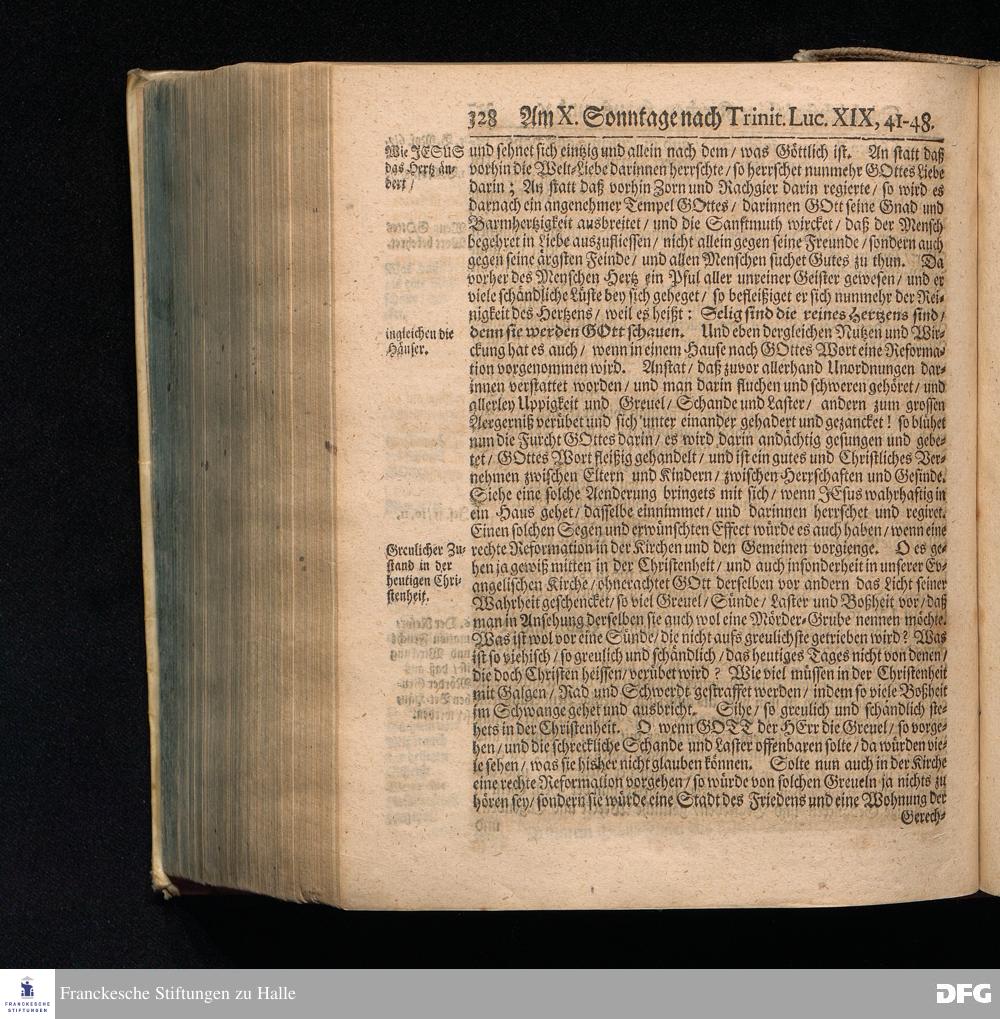 328 Am X. Sonntage nach Trinit. Luc. XIX, 41-48.
Wie JESUS
das Hertz än-
dert /
und sehnet sich eintzig und allein nach dem / was Göttlich ist. An statt daß
vorhin die Welt-Liebe darinnen herrschte / so herrschet nunmehr GOttes Liebe
darin; An statt daß vorhin Zorn und Rachgier darin regierte / so wird es
darnach ein angenehmer Tempel GOttes / darinnen GOtt seine Gnad und
Barmhertzigkeit ausbreitet / und die Sanftmuth wircket / daß der Mensch
begehret in Liebe auszufliessen / nicht allein gegen seine Freunde / sondern auch
gegen seine ärgsten Feinde / und allen Menschen suchet Gutes zu thun. Da
vorher des Menschen Hertz ein Pful aller unreiner Geister gewesen / und er
viele schändliche Lüste bey sich geheget / so befleißiget er sich nunmehr der Rei-
nigkeit des Hertzens / weil es heißt: Selig sind die reines Hertzens sind /
ingleichen die
Häuser.
denn sie werden GOtt schauen. Und eben dergleichen Nutzen und Wir-
ckung hat es auch / wenn in einem Hause nach GOttes Wort eine Reforma-
tion vorgenommen wird. Anstat / daß zuvor allerhand Unordnungen dar-
innen verstattet worden / und man darin fluchen und schweren gehöret / und
allerley Uppigkeit und Greuel / Schande und Laster / andern zum grossen
Aergerniß verübet und sich unter einander gehadert und gezancket! so blühet
nun die Furcht GOttes darin / es wird darin andächtig gesungen und gebe-
tet / GOttes Wort fleißig gehandelt / und ist ein gutes und Christliches Ver-
nehmen zwischen Eltern und Kindern / zwischen Herrschaften und Gesinde.
Siehe eine solche Aenderung bringets mit sich / wenn JEsus wahrhaftig in
ein Haus gehet / dasselbe einnimmet / und darinnen herrschet und regiret.
Einen solchen Segen und erwünschten Effect würde es auch haben / wenn eine
Greulicher Zu-
stand in der
heutigen Chri-
stenheit.
rechte Reformation in der Kirchen und den Gemeinen vorgienge. O es ge-
hen ja gewiß mitten in der Christenheit / und auch insonderheit in unserer Ev-
angelischen Kirche / ohnerachtet GOtt derselben vor andern das Licht seiner
Wahrheit geschencket / so viel Greuel / Sünde / Laster und Boßheit vor / daß
man in Ansehung derselben sie auch wol eine Mörder-Grube nennen möchte.
Was ist wol vor eine Sünde / die nicht aufs greulichste getrieben wird? Was
ist so viehisch / so greulich und schändlich / das heutiges Tages nicht von denen /
die doch Christen heissen / verübet wird? Wie viel müssen in der Christenheit
mit Galgen / Rad und Schwerdt gestraffet werden / indem so viele Boßheit
im Schwange gehet und ausbricht. Sihe / so greulich und schändlich ste-
hets in der Christenheit. O wenn GOTT der HErr die Greuel / so vorge-
hen / und die schreckliche Schande und Laster offenbaren solte / da würden vie-
le sehen / was sie bisher nicht glauben können. Solte nun auch in der Kirche
eine rechte Reformation vorgehen / so würde von solchen Greueln ja nichts zu
hören sey / sondern sie würde eine Stadt des Friedens und eine Wohnung der
Gerech-
FRANCKESCHE
STIFTUNGEN
Franckesche Stiftungen zu Halle
DFG